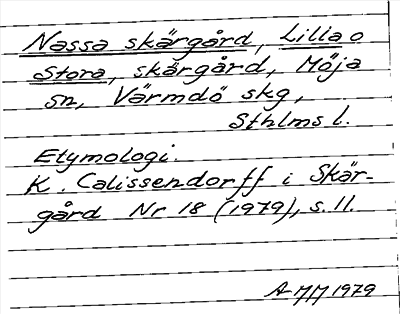 Nassa skärgård, Lilla o
Stora, skärgård, Möja
sn, Värmdö skg,
Sthlms l.
Etymologi.
K. Calissendorff i Skär-
gård Nr 18 (1979), s. 11.
1979